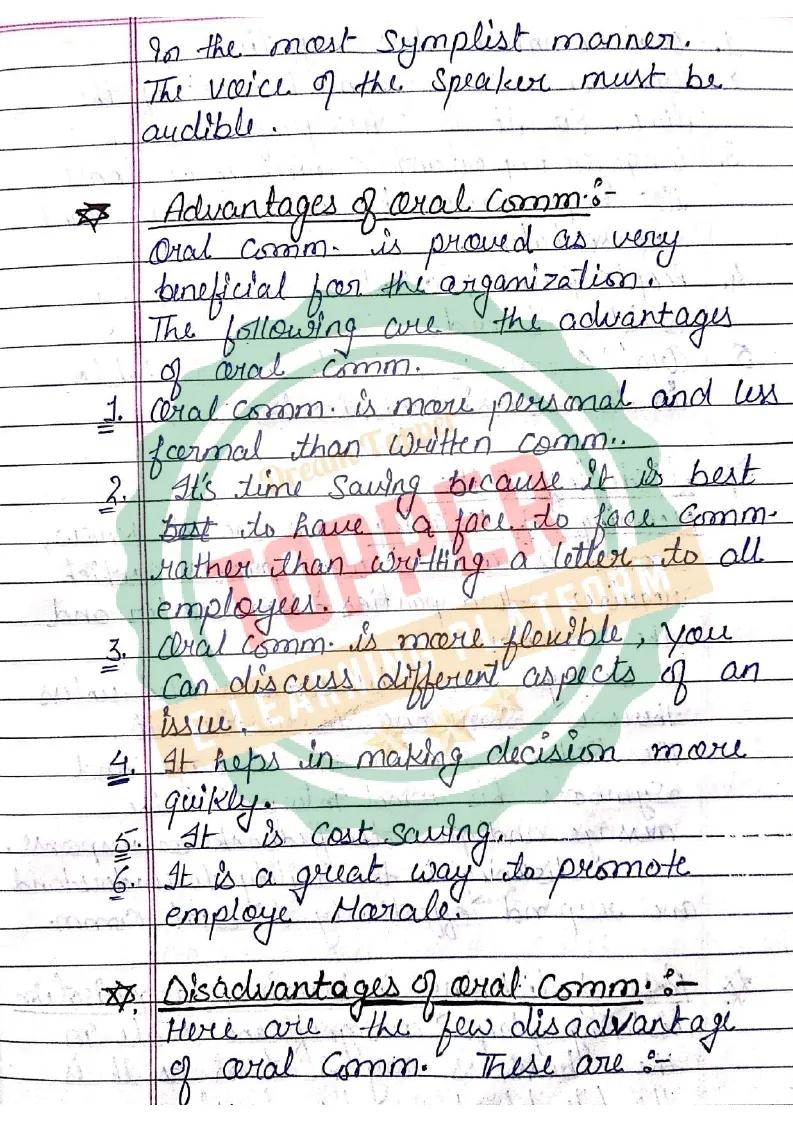 In the most symplist manner.
The voice of the speaker must be
audible.
Advantages of oral Comm.:-
Oral Comm. is proved as very
beneficial for the organization.
The following are the advantages
of oral Comm.
1. Oral Comm. is more personal and less
formal than written comm..
Dream Topper
2. It's time saving because it is best
best to have a face to face Comm.
rather than writting a letter to all
employees.
TOPPER
3. Oral Comm. is more flexible, you
can discuss different aspects of an
issue.
E-LEARNING PLATFORM
4. It heps in making decision more
quikly.
5. It is cost saving.
6. It is a great way to promote
employe Morale.
Disadvantages of oral Comm.:-
Here are the few disadvantage
of oral Comm. These are :-